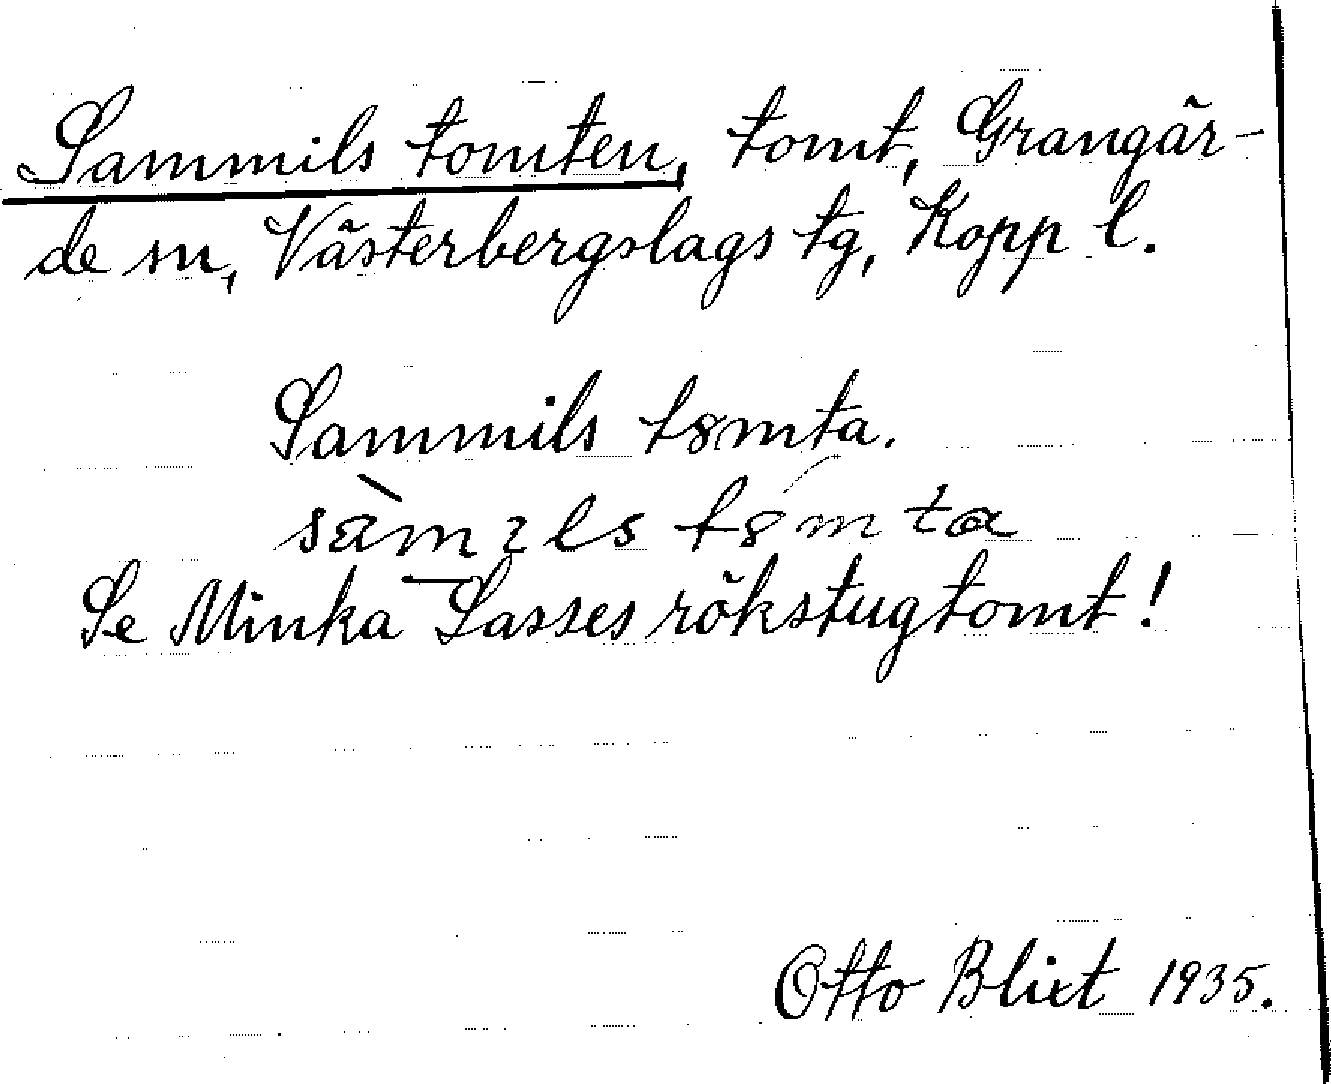 Sammils tomten, tomt, Grangär-
de sn, Västerbergslags tg, Kopp l.
Sammils t8mta.
sàmɿls t8mta
Se Minka Lasses rökstugtomt!
Otto Blixt 1935.